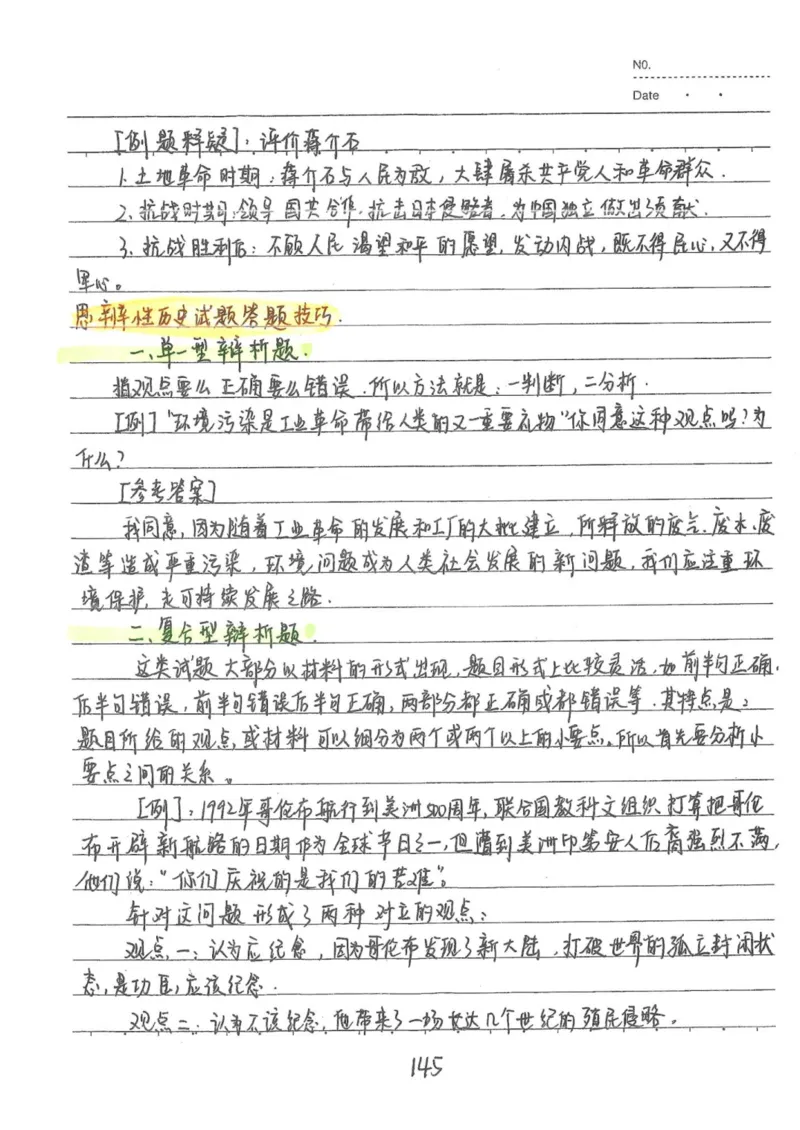 NO.
Date
[例题释疑]：评价蒋介石
1.土地革命时期：蒋介石与人民为敌，大肆屠杀共产党人和革命群众.
2.抗战时期：领导国共合作，抗击日本侵略者，为中国独立做出了贡献.
3.抗战胜利后：不顾人民渴望和平的愿望，发动内战，既不得民心，又不得
军心。
思辨性历史试题答题技巧.
一、单一型辩析题.
指观点要么正确要么错误.所以方法就是：一判断，二分析.
[例]"环境污染是工业革命带给人类的又一重要礼物"你同意这种观点吗?为
什么?
[参考答案]
我同意，因为随着工业革命的发展和工厂的大批建立，所释放的废气、废水、废
渣等造成严重污染，环境问题成为人类社会发展的新问题，我们应注重环
境保护，走可持续发展之路.
二、复合型辩析题.
这类试题大部分以材料的形式出现，题目形式上比较灵活，如前半句正确，
后半句错误，前半句错误后半句正确，两部分都正确或都错误等.其特点是：
题目所给的观点，或材料可以细分为两个或两个以上的小要点。所以首先要分析小
要点之间的关系。
[例]：1992年哥伦布航行到美洲500周年，联合国教科文组织打算把哥伦
布开辟新航路的日期作为全球节日之一，但遭到美洲印第安人后裔强烈不满，
他们说："你们庆祝的是我们的苦难"。
针对这问题形成了两种对立的观点：
观点一：认为应纪念，因为哥伦布发现了新大陆，打破世界的孤立封闭状
态，是功臣，应该纪念.
观点二：认为不该纪念，他带来了一场长达几个世纪的殖民侵略。
145